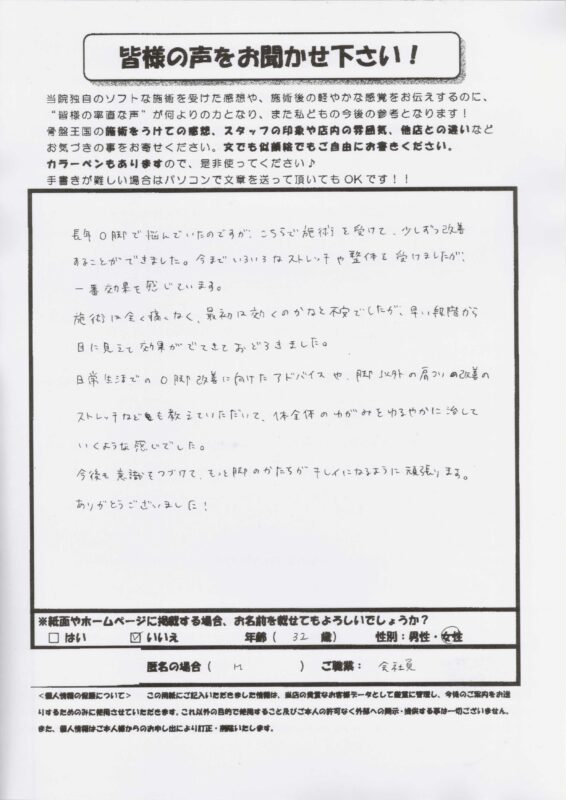 皆様の声をお聞かせ下さい！
当院独自のソフトな施術を受けた感想や、施術後の軽やかな感覚をお伝えするのに、
“皆様の率直な声”が何よりの力となり、また私どもの今後の参考となります！
骨盤王国の施術をうけての感想、スタッフの印象や店内の雰囲気、他店との違いなど
お気づきの事をお寄せください。文でも似顔絵でもご自由にお書きください。
カラーペンもありますので、是非使ってください♪
手書きが難しい場合はパソコンで文章を送って頂いてもOKです！！
長年O脚で悩んでいたのですが、こちらで施術を受けて、少しずつ改善
することができました。今までいろいろなストレッチや整体を受けましたが、
一番効果を感じています。
施術は全く痛くなく、最初は効くのかなと不安でしたが、早い段階から
目に見えて効果がでてきておどろきました。
日常生活でのO脚改善に向けたアドバイスや、脚以外の肩コリの改善の
ストレッチなども教えていただいて、体全体のゆがみをゆるやかに治して
いくような感じでした。
今後も意識をつづけて、もっと脚のかたちがキレイになるように頑張ります。
ありがとうございました！
※紙面やホームページに掲載する場合、お名前を載せてもよろしいでしょうか？
□ はい ☑ いいえ 年齢（ 32 歳） 性別：男性・女性
匿名の場合（ M ） ご職業： 会社員
＜個人情報の保護について＞ この用紙にご記入いただきました情報は、当店の貴重なお客様データとして厳重に管理し、今後のご案内をお送
りするためのみに使用させていただきます。これ以外の目的で使用すること及びご本人の許可なく外部への開示・提供する事は一切ございません。
また、個人情報はご本人様からのお申し出により訂正・削除いたします。